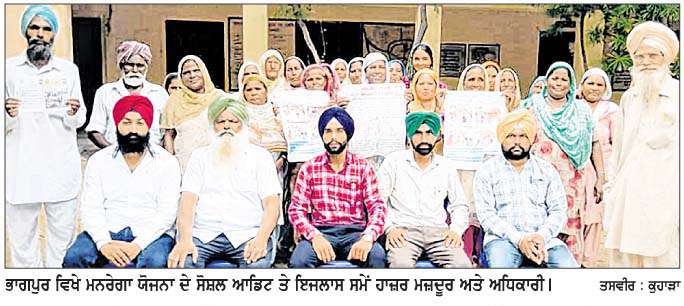 ਭਾਗਪੁਰ ਵਿਖੇ ਮਨਰੇਗਾ ਯੋਜਨਾ ਦੇ ਸੋਸ਼ਲ ਆਡਿਟ ਤੇ ਇਜਲਾਸ ਸਮੇਂ ਹਾਜ਼ਰ ਮਜ਼ਦੂਰ ਅਤੇ ਅਧਿਕਾਰੀ। ਤਸਵੀਰ : ਕੁਹਾੜਾ